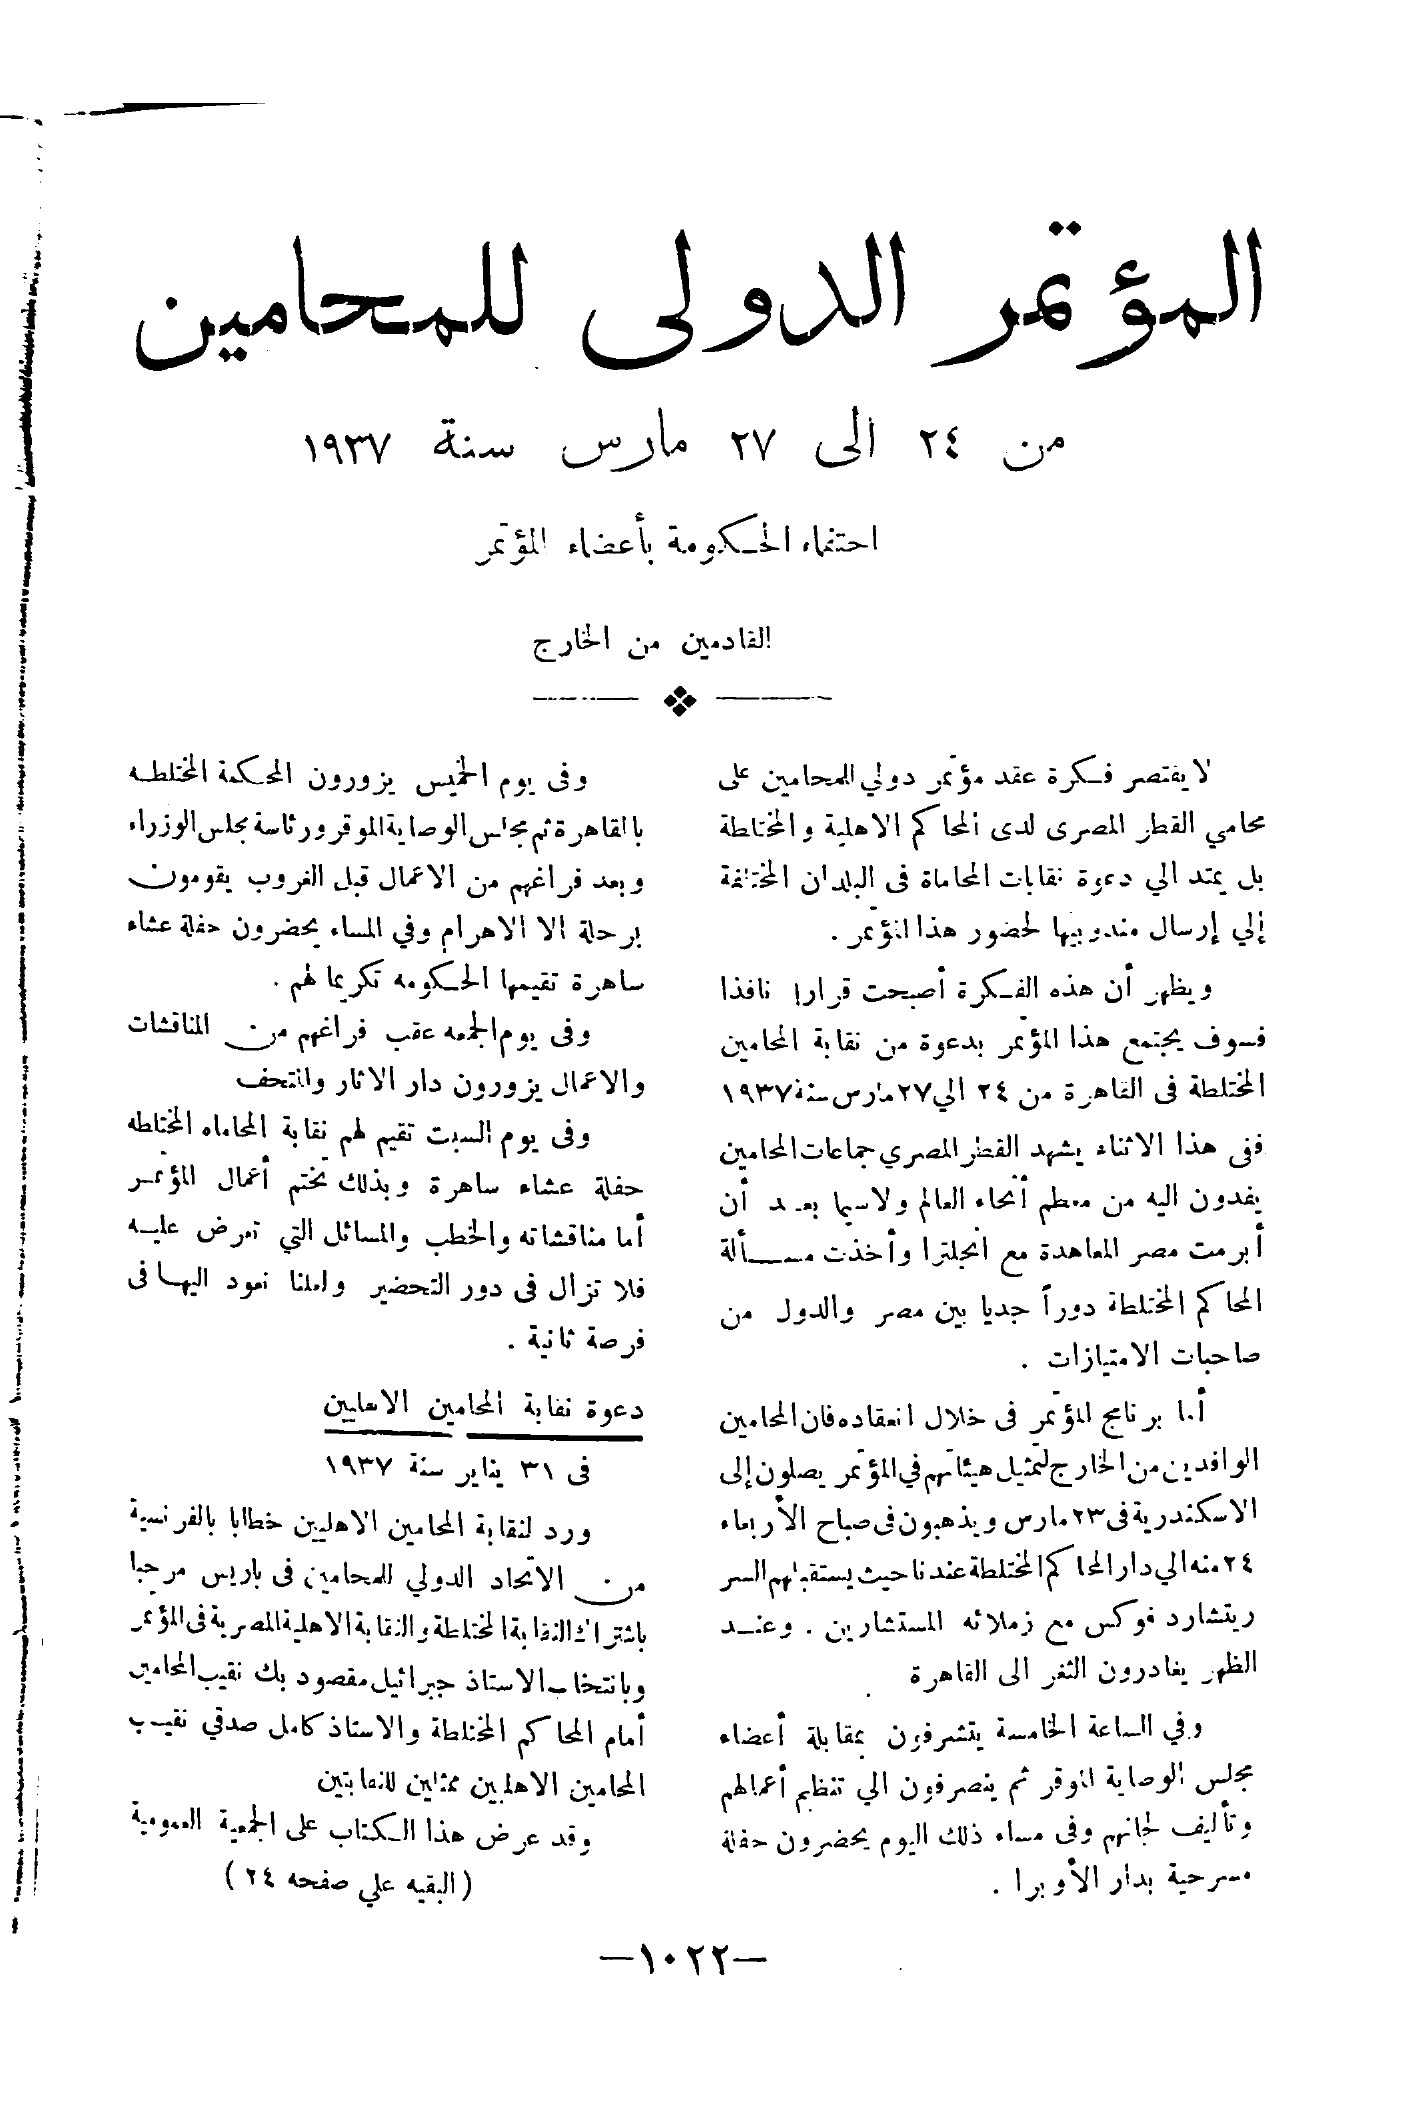 المؤتمر الدولى للمحامين
من ٢٤ الى ٢٧ مارس سنة ١٩٣٧
احتفاء الحكومة بأعضاء المؤتمر
القادمين من الخارج
لا يقتصر فكرة عقد مؤتمر دولي للمحامين على
محامي القطر المصرى لدى المحاكم الاهلية والمختلطة
بل يمتد الي دعوة نقابات المحاماة فى البلدان المختلفة
إلي إرسال مندوبيها لحضور هذا المؤتمر .
ويظهر أن هذه الفكرة أصبحت قرارا نافذا
فسوف يجتمع هذا المؤتمر بدعوة من نقابة المحامين
المختلطة فى القاهرة من ٢٤ الي ٢٧ مارس سنة ١٩٣٧
ففى هذا الاثناء يشهد القطر المصري جماعات المحامين
يفدون اليه من معظم أنحاء العالم ولاسيما بعد أن
أبرمت مصر المعاهدة مع انجلترا وأخذت مسألة
المحاكم المختلطة دوراً جديا بين مصر والدول من
صاحبات الامتيازات .
أما برنامج المؤتمر فى خلال انعقاده فان المحامين
الوافدين من الخارج لتمثيل هيئاتهم في المؤتمر يصلون إلى
الاسكندرية فى ٢٣ مارس ويذهبون فى صباح الأربعاء
٢٤ منه الي دار المحاكم المختلطة عندنا حيث يستقبلهم السر
ريتشارد فوكس مع زملائه المستشارين . وعند
الظهر يغادرون الثغر الى القاهرة
وفي الساعة الخامسة يتشرفون بمقابلة أعضاء
مجلس الوصاية الموقر ثم ينصرفون الي تنظيم أعمالهم
وتأليف لجانهم وفى مساء ذلك اليوم يحضرون حفلة
مسرحية بدار الأوبرا .
وفى يوم الخميس يزورون المحكمة المختلطه
بالقاهرة ثم مجلس الوصاية الموقر ورئاسة مجلس الوزراء
وبعد فراغهم من الاعمال قبل الغروب يقومون
برحلة الا الاهرام وفي المساء يحضرون حفلة عشاء
ساهرة تقيمها الحكومه تكريما لهم .
وفى يوم الجمعه عقب فراغهم من المناقشات
والاعمال يزورون دار الاثار والمتحف
وفى يوم السبت تقيم لهم نقابة المحاماه المختلطه
حفلة عشاء ساهرة وبذلك تختم أعمال المؤتمر
أما مناقشاته والخطب والمسائل التي تعرض عليه
فلا تزال فى دور التحضير ولعلنا نعود اليها فى
فرصة ثانية .
دعوة نقابة المحامين الاهليين
فى ٣١ يناير سنة ١٩٣٧
ورد لنقابة المحامين الاهليين خطابا بالفرنسية
من الاتحاد الدولي للمحامين فى باريس مرحبا
باشتراك النقابة المختلطة والنقابة الاهلية المصرية فى المؤتمر
وبانتخاب الاستاذ جبرائيل مقصود بك نقيب المحامين
أمام المحاكم المختلطة والاستاذ كامل صدقي نقيب
المحامين الاهليين ممثلين للنقابتين
وقد عرض هذا الكتاب على الجمعية العمومية
(البقيه علي صفحه ٢٤)
—١٠٢٢—